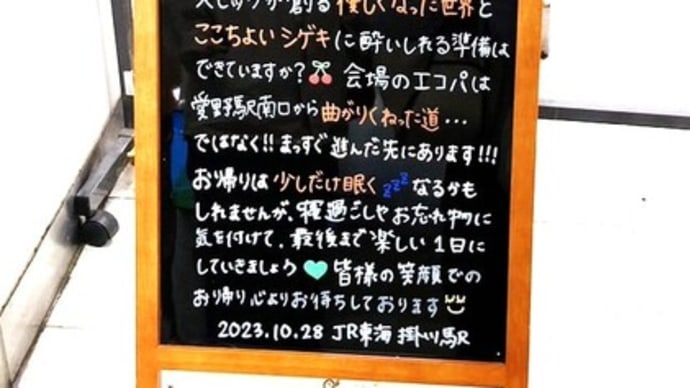 が創る優しくなった世界と
ここちよいシゲキに酔いしれる準備は
できていますか?🍒 会場のエコパは
愛野駅南口から曲がりくねった道...
ではなく!!まっすぐ進んだ先にあります!!!
お帰りは少しだけ眠くzzzなるかも
しれませんが、寝過ごしやお忘れ物に
気を付けて、最後まで楽しい1日に
していきましょう 皆様の笑顔での
お帰り心よりお待ちしております
2023.10.28 JR東海 掛川駅R